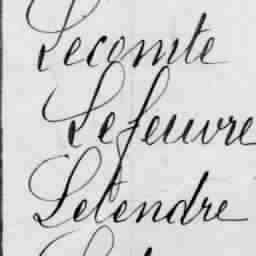 Lecomte
Lefeuvre
Letendre